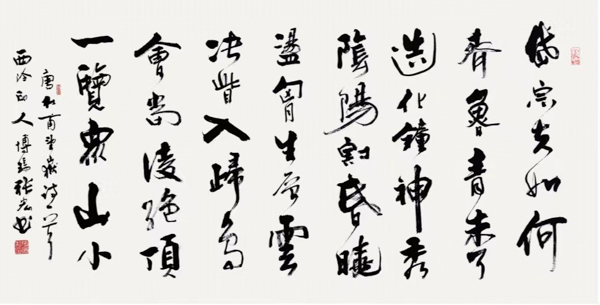 岱宗夫如何
齊魯青未了
造化鐘神秀
陰陽割昏曉
盪胷生层雲
决眥入歸鳥
會當凌絶頂
一覽眾山小
唐杜甫望嶽詩一首
西泠印人